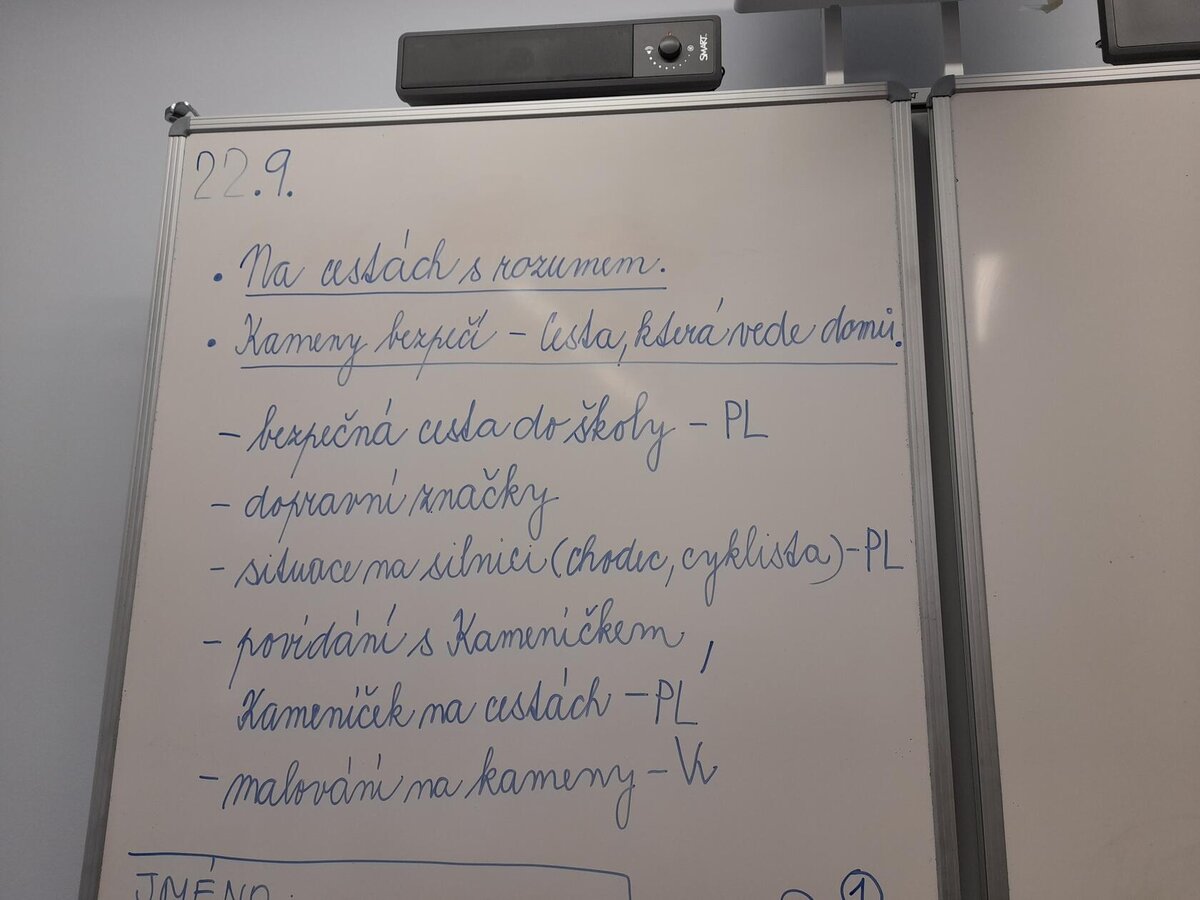 SMART
22.9.
• Na cestách s rozumem.
• Kameny bezpečí – Cesta, která vede domů.
– bezpečná cesta do školy – PL
– dopravní značky
– situace na silnici (chodec, cyklista) – PL
– povídání s Kameníčkem,
Kameníček na cestách – PL
– malování na kameny – Vv
JMÉNO:
1